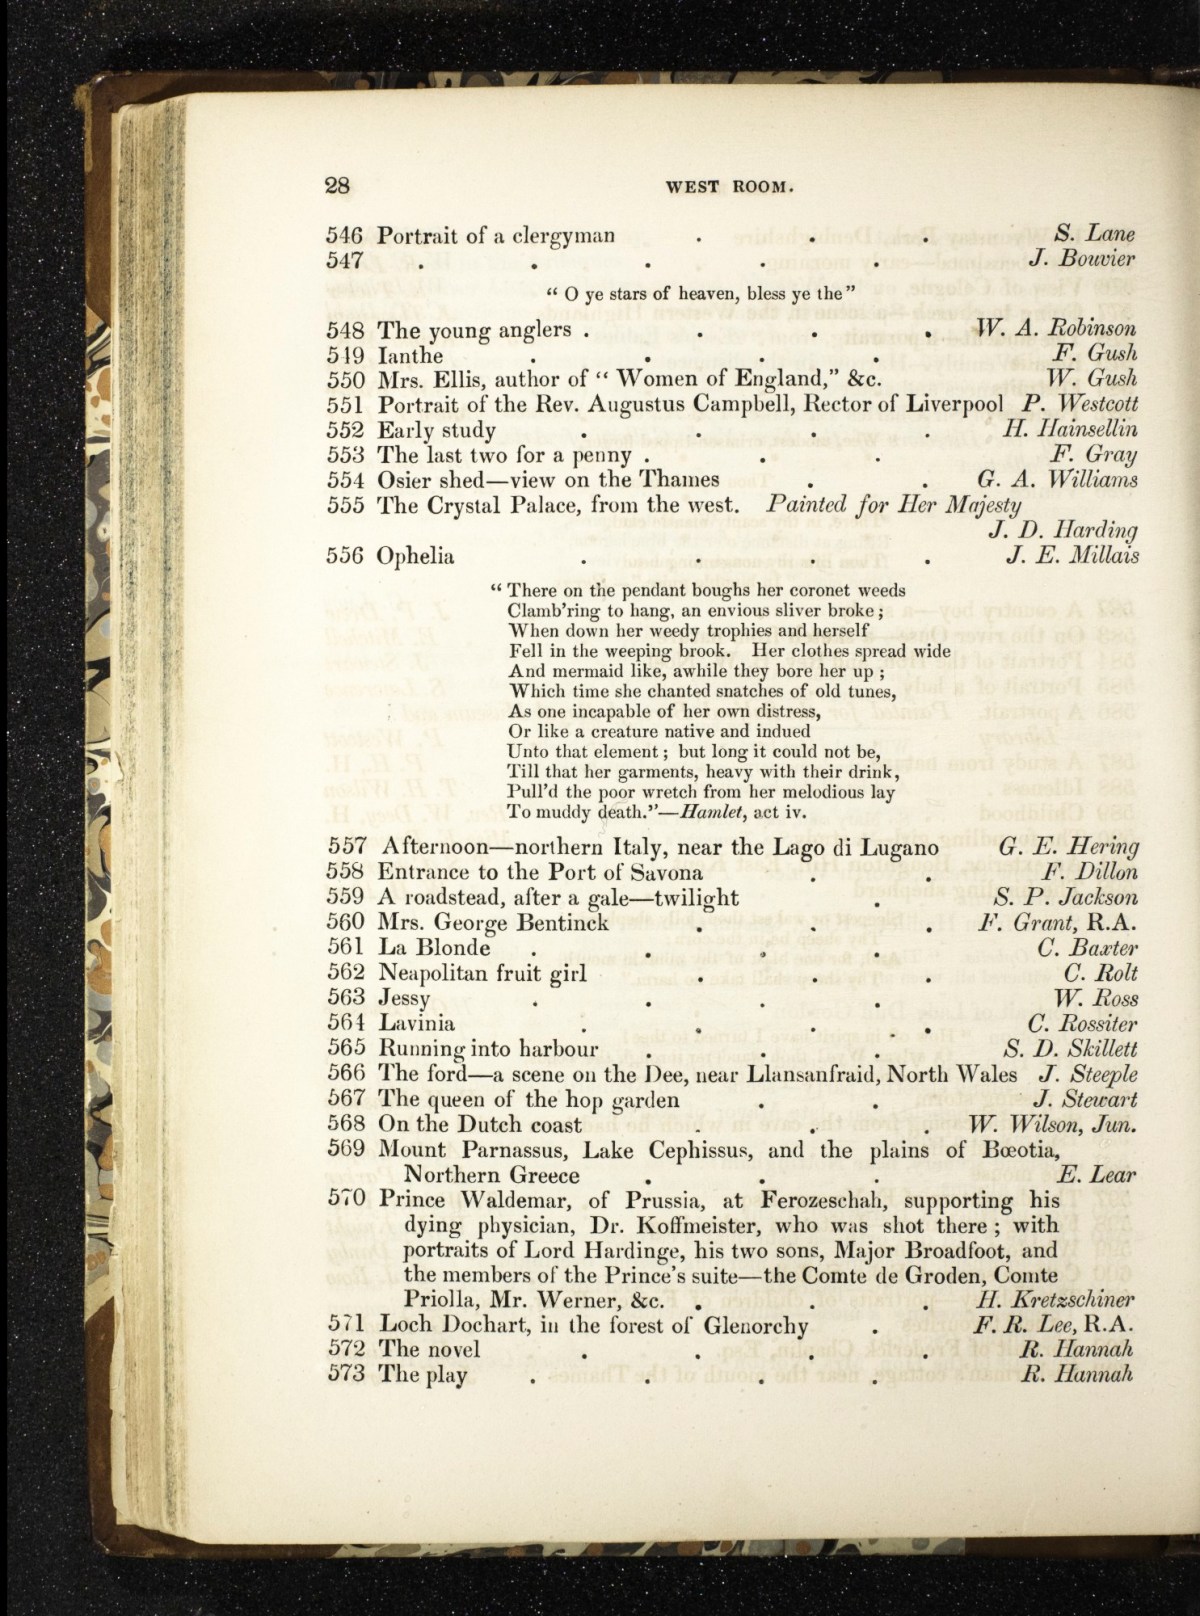 28 WEST ROOM.
546 Portrait of a clergyman . . . S. Lane
547 . . . . . J. Bouvier
“ O ye stars of heaven, bless ye the”
548 The young anglers . . . . W. A. Robinson
549 Ianthe . . . . F. Gush
550 Mrs. Ellis, author of “ Women of England,” &c. W. Gush
551 Portrait of the Rev. Augustus Campbell, Rector of Liverpool P. Westcott
552 Early study . . . . H. Hainsellin
553 The last two for a penny . . . F. Gray
554 Osier shed—view on the Thames . . G. A. Williams
555 The Crystal Palace, from the west. Painted for Her Majesty
J. D. Harding
556 Ophelia . . . . J. E. Millais
“ There on the pendant boughs her coronet weeds
Clamb’ring to hang, an envious sliver broke ;
When down her weedy trophies and herself
Fell in the weeping brook. Her clothes spread wide
And mermaid like, awhile they bore her up ;
Which time she chanted snatches of old tunes,
As one incapable of her own distress,
Or like a creature native and indued
Unto that element ; but long it could not be,
Till that her garments, heavy with their drink,
Pull’d the poor wretch from her melodious lay
To muddy death.”—Hamlet, act iv.
557 Afternoon—northern Italy, near the Lago di Lugano G. E. Hering
558 Entrance to the Port of Savona . . F. Dillon
559 A roadstead, after a gale—twilight . S. P. Jackson
560 Mrs. George Bentinck . . . F. Grant, R.A.
561 La Blonde . . . . C. Baxter
562 Neapolitan fruit girl . . . C. Rolt
563 Jessy . . . . W. Ross
564 Lavinia . . . . C. Rossiter
565 Running into harbour . . . S. D. Skillett
566 The ford—a scene on the Dee, near Llansanfraid, North Wales J. Steeple
567 The queen of the hop garden . . J. Stewart
568 On the Dutch coast . . . W. Wilson, Jun.
569 Mount Parnassus, Lake Cephissus, and the plains of Bœotia,
Northern Greece . . . E. Lear
570 Prince Waldemar, of Prussia, at Ferozeschah, supporting his
dying physician, Dr. Koffmeister, who was shot there ; with
portraits of Lord Hardinge, his two sons, Major Broadfoot, and
the members of the Prince’s suite—the Comte de Groden, Comte
Priolla, Mr. Werner, &c. . . . H. Kretzschiner
571 Loch Dochart, in the forest of Glenorchy . F. R. Lee, R.A.
572 The novel . . . . R. Hannah
573 The play . . . . R. Hannah